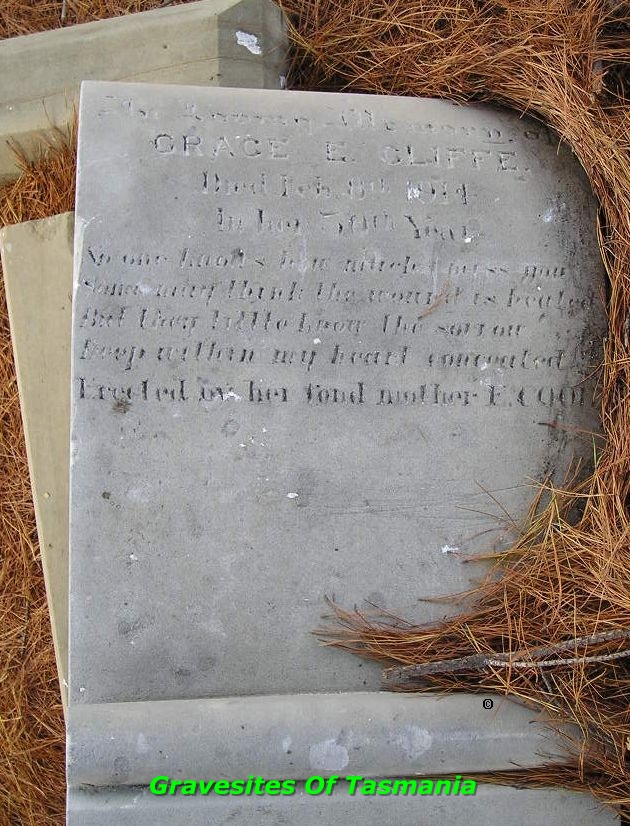 In Loving Memory of
GRACE E. CLIFFE.
Died Feb. 8th 1914
In her 30th Year.
No one knows how much I miss you
Some may think the wound is healed
But they little know the sorrow
Deep within my heart concealed
Erected by her fond mother E.
©
Gravesites Of Tasmania